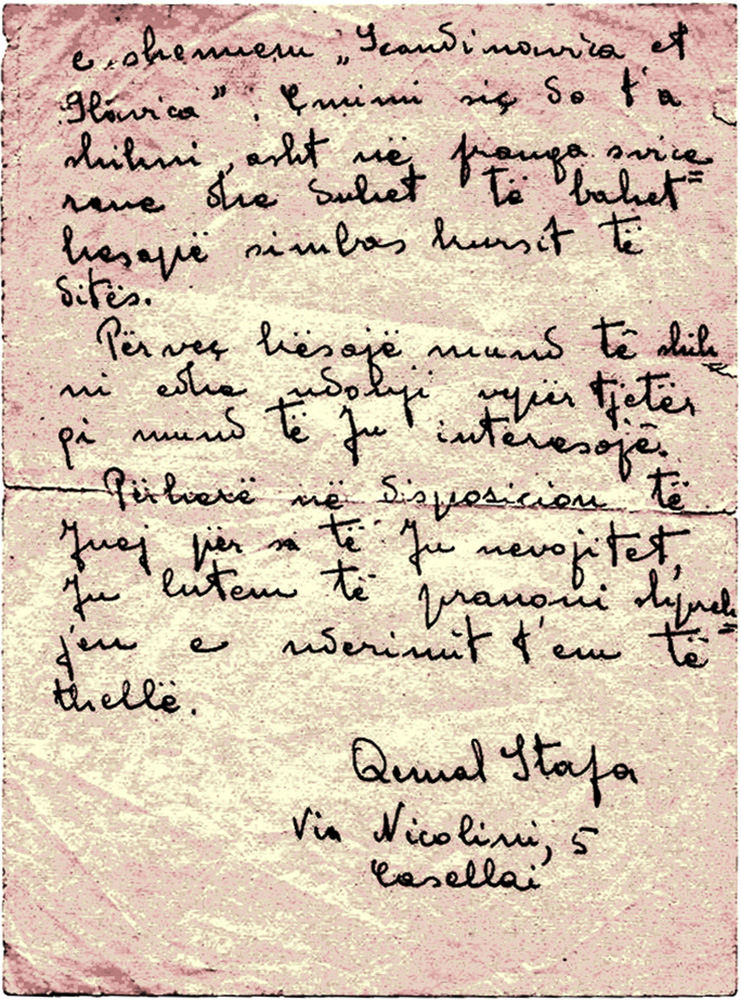 e shenuem „Scandinavica et
Slavica”. Çmimi siç do t'a
shihni, asht në franga svice
rane dhe duhet të bahet=
hesapë simbas kursit të
ditës.
Përveç kësajë mund të shih
ni edhe ndonji vepër tjetër
qi mund të Ju interesojë.
Përherë në disposicion të
Juej për sa të Ju nevojitet,
Ju lutem të pranoni shpreh=
jen e nderimit t'em të
thellë.
Qemal Stafa
Via Nicolini, 5
Casellai